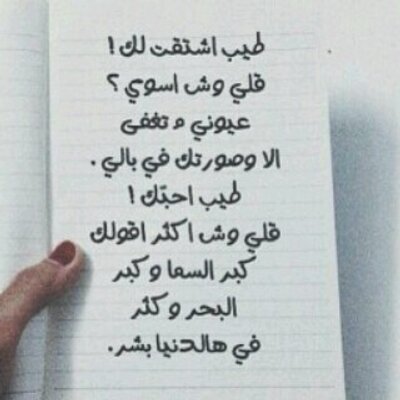 طيب اشتقت لك !
قلي وش اسوي ؟
عيوني م تغفى
الا وصورتك في بالي .
طيب احبّك !
قلي وش اكثر اقولك
كبر السما و كبر
البحر و كثر
في هالدنيا بشر .